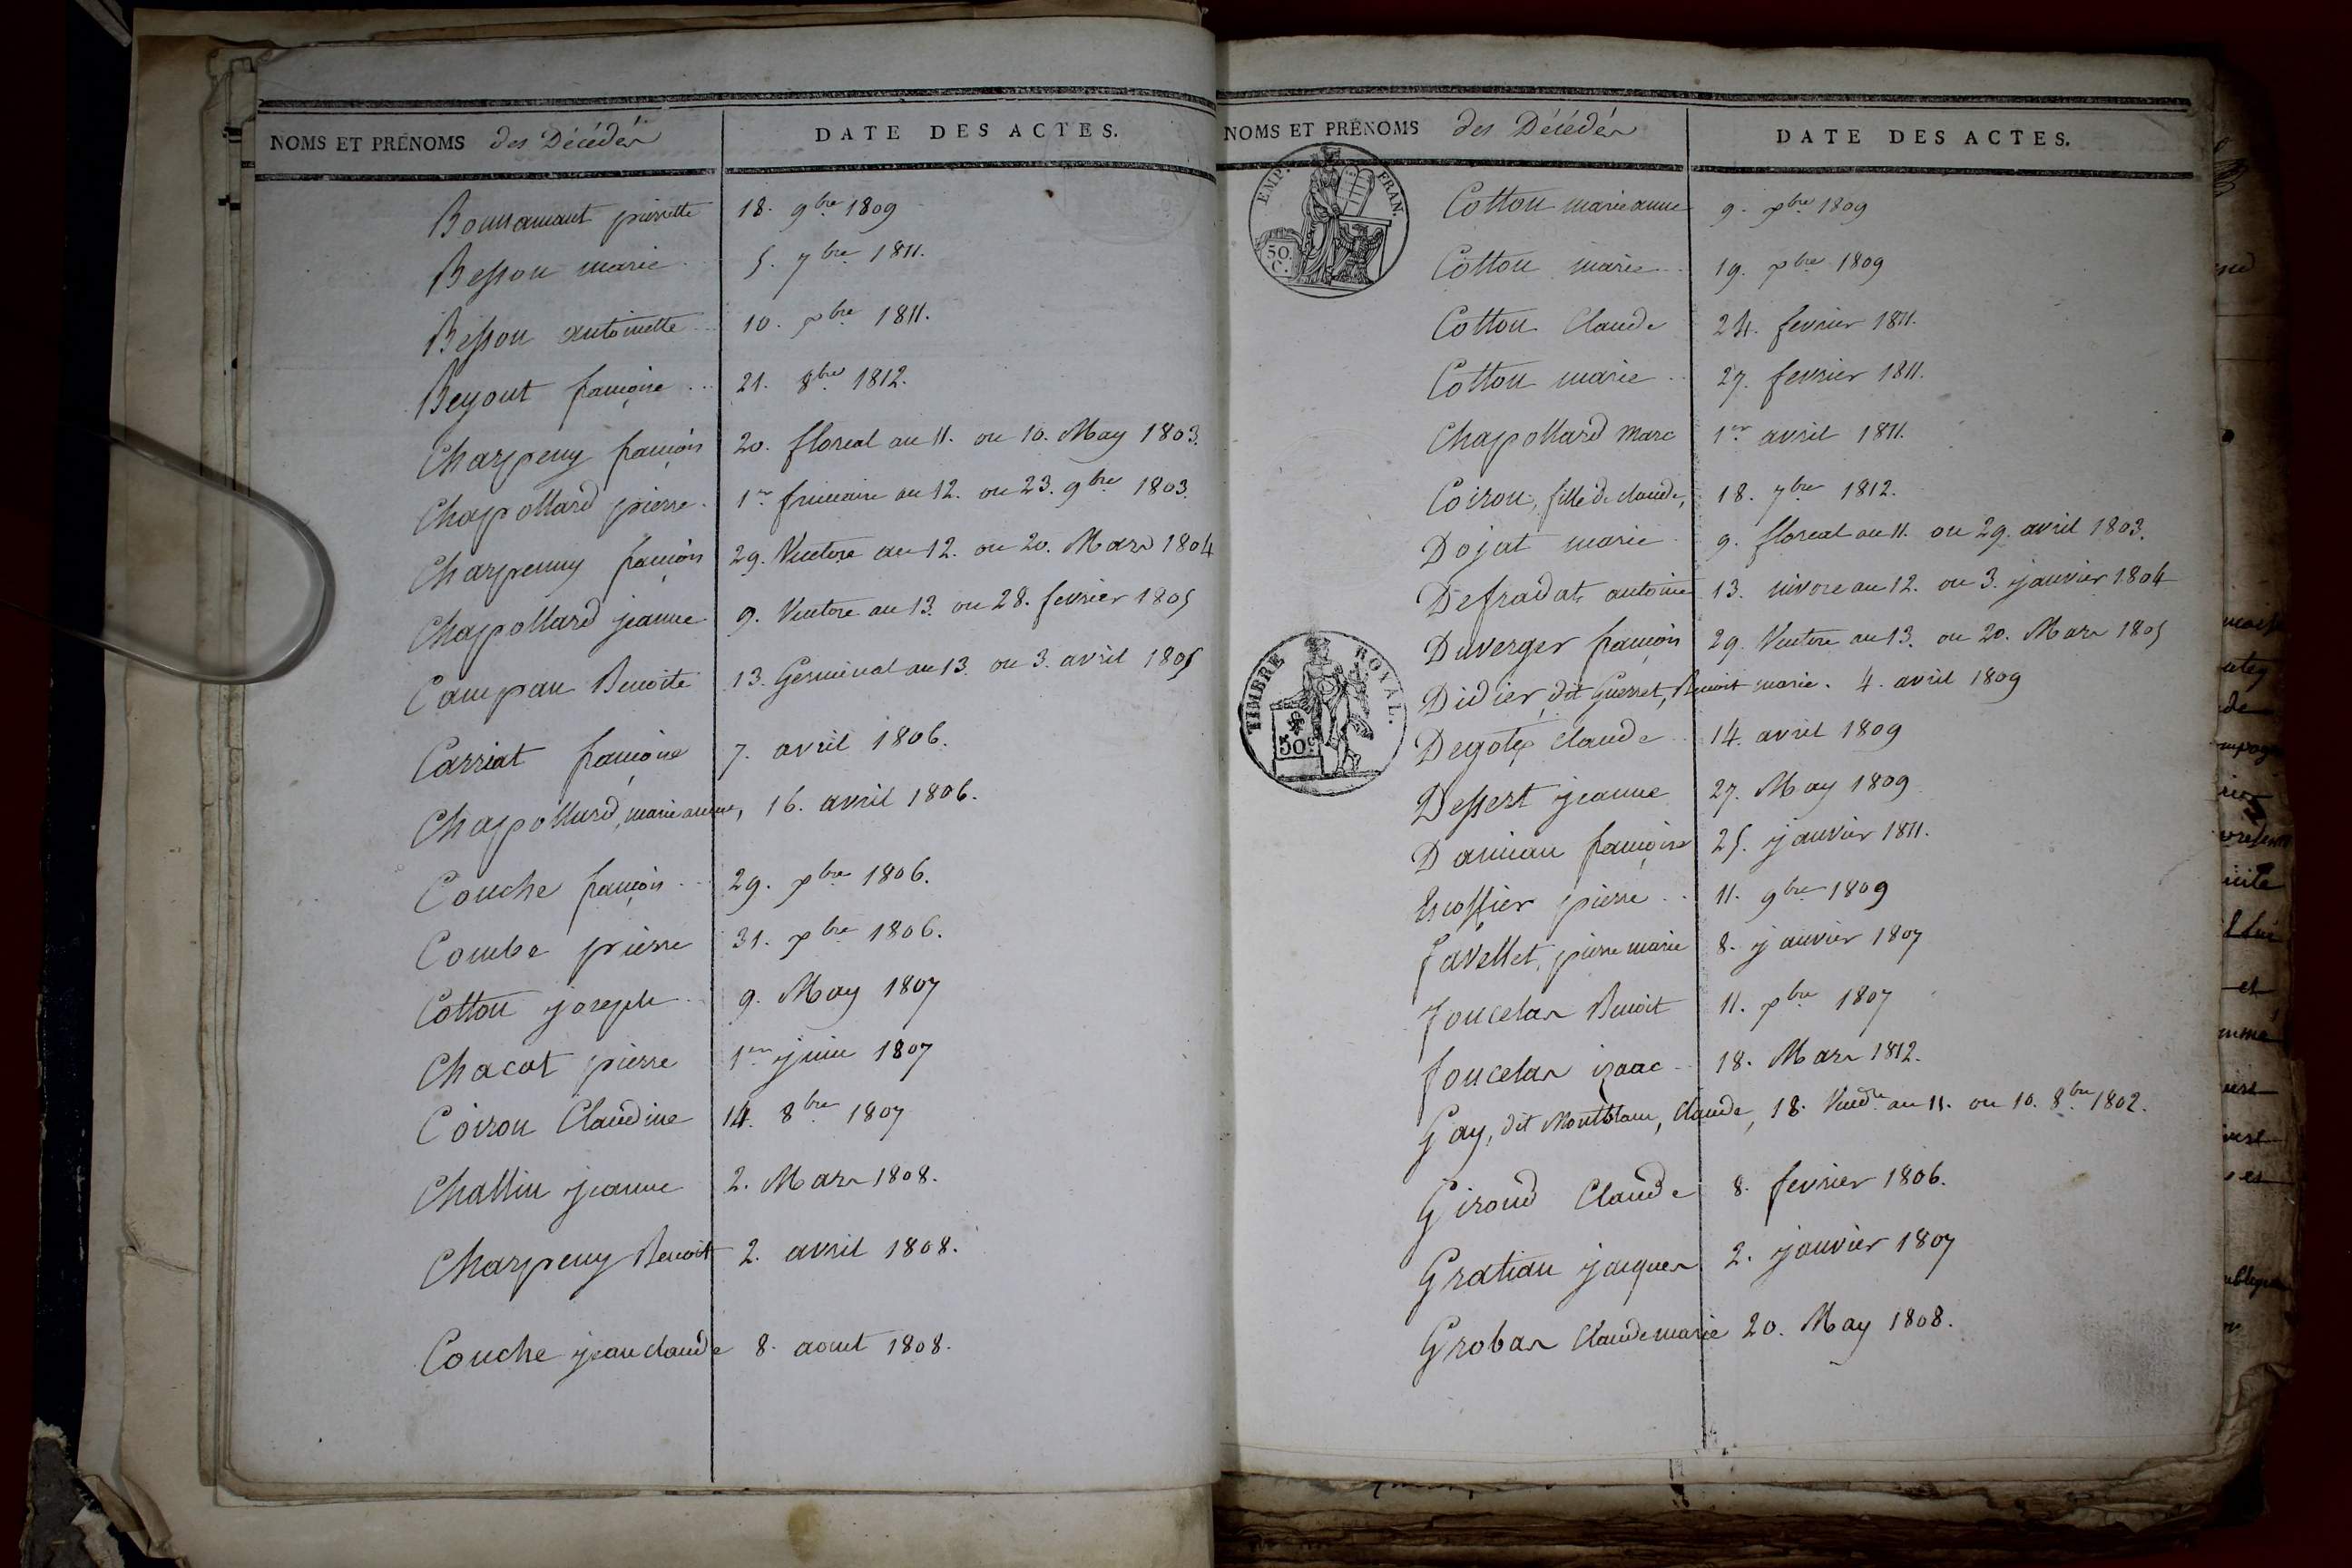 NOMS ET PRÉNOMS des Décédés
DATE DES ACTES.
Bonnamant pierrette 18. 9bre 1809
Besson marie 5. 7bre 1811.
Besson antoinette 10. xbre 1811.
Beyout françoise 21. 8bre 1812.
Charpeny françois 20. floreal an 11. ou 10. May 1803.
Chapollard pierre 1er frimaire an 12. ou 23. 9bre 1803.
Charpenny françois 29. Ventose an 12. ou 20. Mars 1804
Chapollard jeanne 9. Ventose an 13. ou 28. fevrier 1805
Campan Benoite 13. Germinal an 13. ou 3. avril 1805
Carriat françoise 7. avril 1806.
Chapollard, marie anne, 16. avril 1806.
Couche françois 29. xbre 1806.
Combe pierre 31. xbre 1806.
Cotton joseph 9. May 1807
Chacat pierre 1er juin 1807
Coiron Claudine 14. 8bre 1807
Challin jeanne 2. Mars 1808.
Charpeny Benoit 2. avril 1808.
Couche jean claude 8. aout 1808.
NOMS ET PRÉNOMS des Décédés
DATE DES ACTES.
EMP. FRAN.
50. C.
Cotton marie anne 9. xbre 1809
Cotton marie 19. xbre 1809
Cotton Claude 24. fevrier 1811.
Cotton marie 27. fevrier 1811.
Chapollard Marc 1er avril 1811.
Coiron, fille de claude, 18. 7bre 1812.
Dojat marie 9. floreal an 11. ou 29. avril 1803.
Defradat antoine 13. nivose an 12. ou 3. janvier 1804
Duverger françois 29. Ventose an 13. ou 20. Mars 1805
TIMBRE ROYAL.
50c
Didier, dit Guerret, Benoit marie. 4. avril 1809
Degotex claude 14. avril 1809
Dessert jeanne 27. May 1809
Damian françoise 25. janvier 1811.
Escoffier pierre 11. 9bre 1809
favellet, pierre marie 8. janvier 1807
foucelas Benoit 11. xbre 1807
foucelas izaac 18. Mars 1812.
Gay, dit Montblanc, Claude, 18. Vendre an 11. ou 10. 8bre 1802.
Giroud Claude 8. fevrier 1806.
Gratian jacques 2. janvier 1807
Grobas Claude marie 20. May 1808.